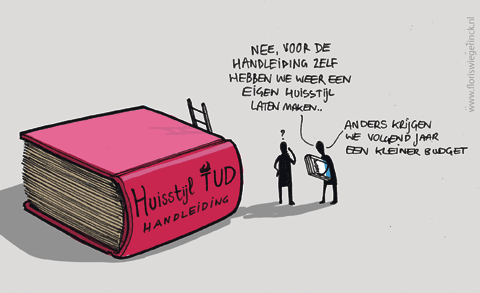 NEE, VOOR DE
HANDLEIDING ZELF
HEBBEN WE WEER EEN
EIGEN HUISSTIJL
LATEN MAKEN..
ANDERS KRIJGEN
WE VOLGEND JAAR
EEN KLEINER BUDGET
?
Huisstijl TUD
HANDLEIDING
www.floriswiegerinck.nl